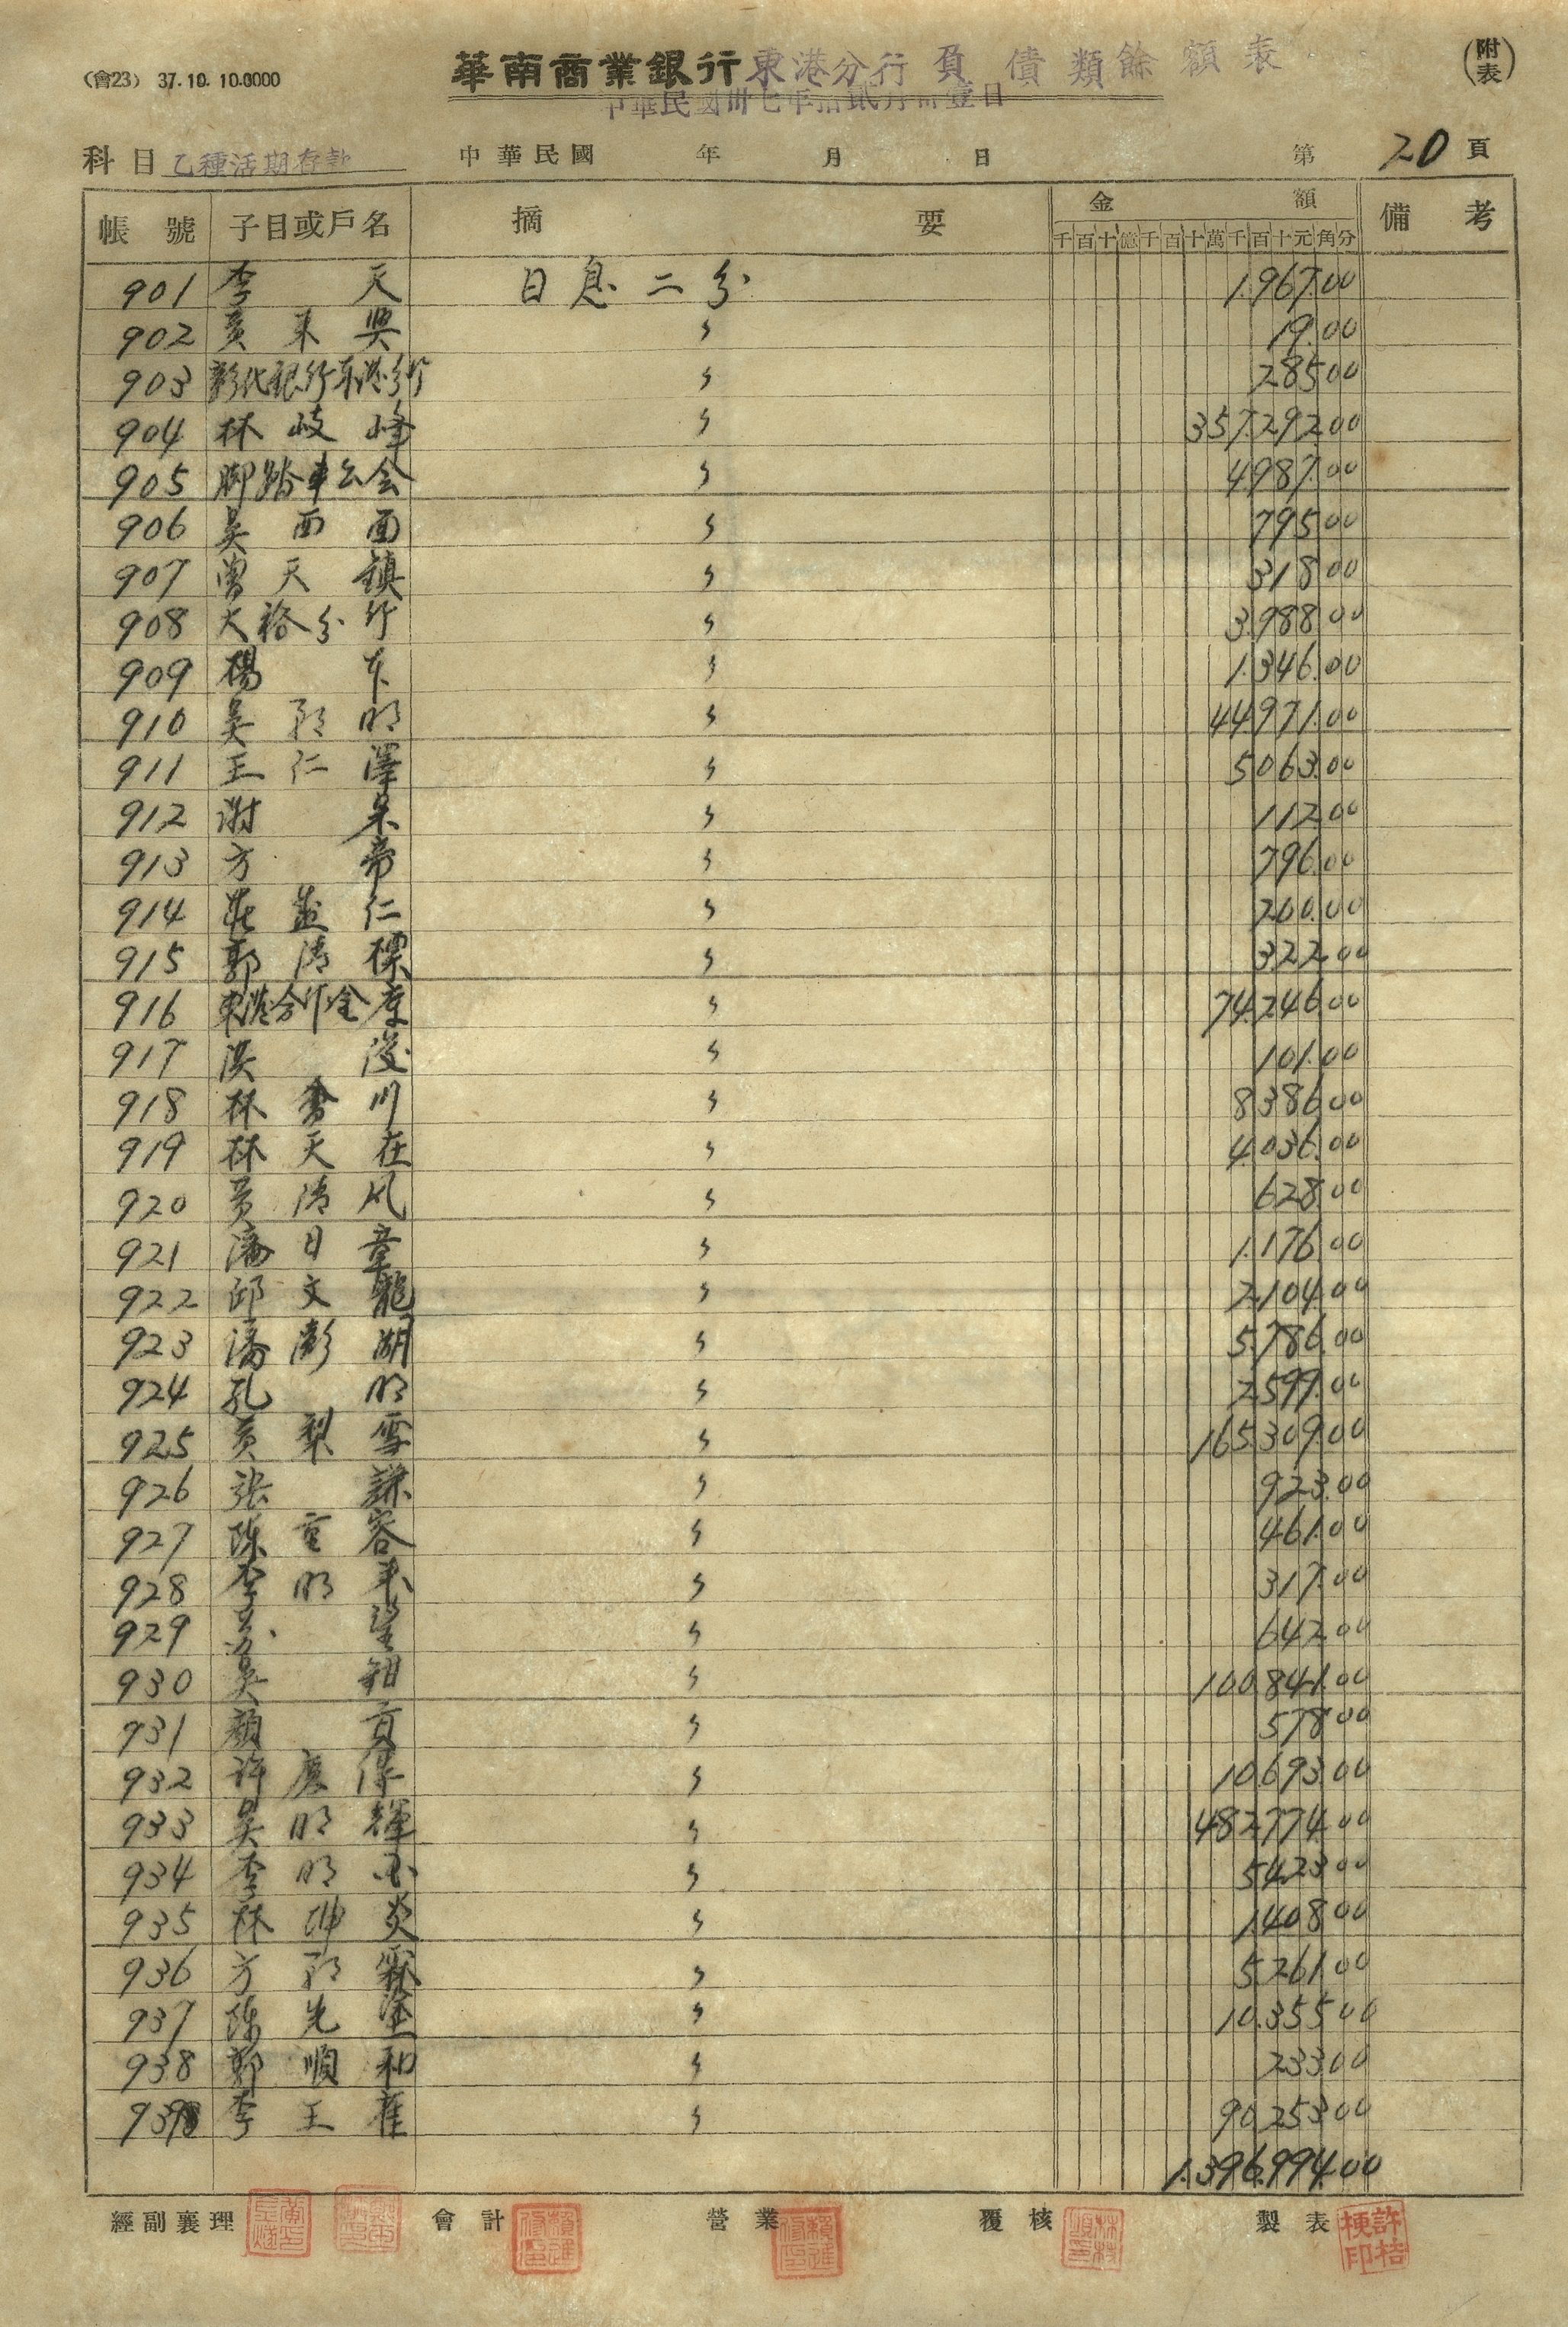 (會23) 37.10. 10.0000
華南商業銀行東港分行負債類餘額表
(附表)
中華民國卅七年拾貳月卅壹日
科目 乙種活期存款 中華民國 年 月 日 第 20 頁
帳號 子目或戶名 摘要 金額 備考
千百十億千百十萬千百十元角分
901 李天 日息二分 1.967.00
902 黃來興 〃 19.00
903 彰化銀行東港分行 〃 285.00
904 林岐峰 〃 357.292.00
905 脚踏車公会 〃 4.987.00
906 吳西面 〃 795.00
907 曾天鎮 〃 318.00
908 大裕分行 〃 3.988.00
909 楊 〃 1.346.00
910 吳明 〃 44.971.00
911 王仁澤 〃 5.063.00
912 谢 〃 112.00
913 方帝 〃 796.00
914 莊仁 〃 200.00
915 郭清標 〃 322.00
916 東港分行金庫 〃 74.246.00
917 洪 〃 101.00
918 林川 〃 8.386.00
919 林天在 〃 4.036.00
920 黃清风 〃 628.00
921 潘日章 〃 1.176.00
922 邱文龍 〃 2.104.00
923 潘澎湖 〃 5.786.00
924 孔明 〃 2.599.00
925 黃梨雪 〃 165.309.00
926 張謙 〃 923.00
927 陳重容 〃 461.00
928 李明来 〃 317.00
929 苏望 〃 642.00
930 吳鉗 〃 100.841.00
931 顏貢 〃 578.00
932 許慶保 〃 10.693.00
933 吳明輝 〃 482.774.00
934 李明 〃 5.423.00
935 林坤炎 〃 1.408.00
936 方霖 〃 5.261.00
937 陳先塗 〃 10.355.00
938 郭順和 〃 233.00
939 李王 〃 90.253.00
1.396.994.00
經副襄理 會計 營業 覆核 製表 許桔梗印